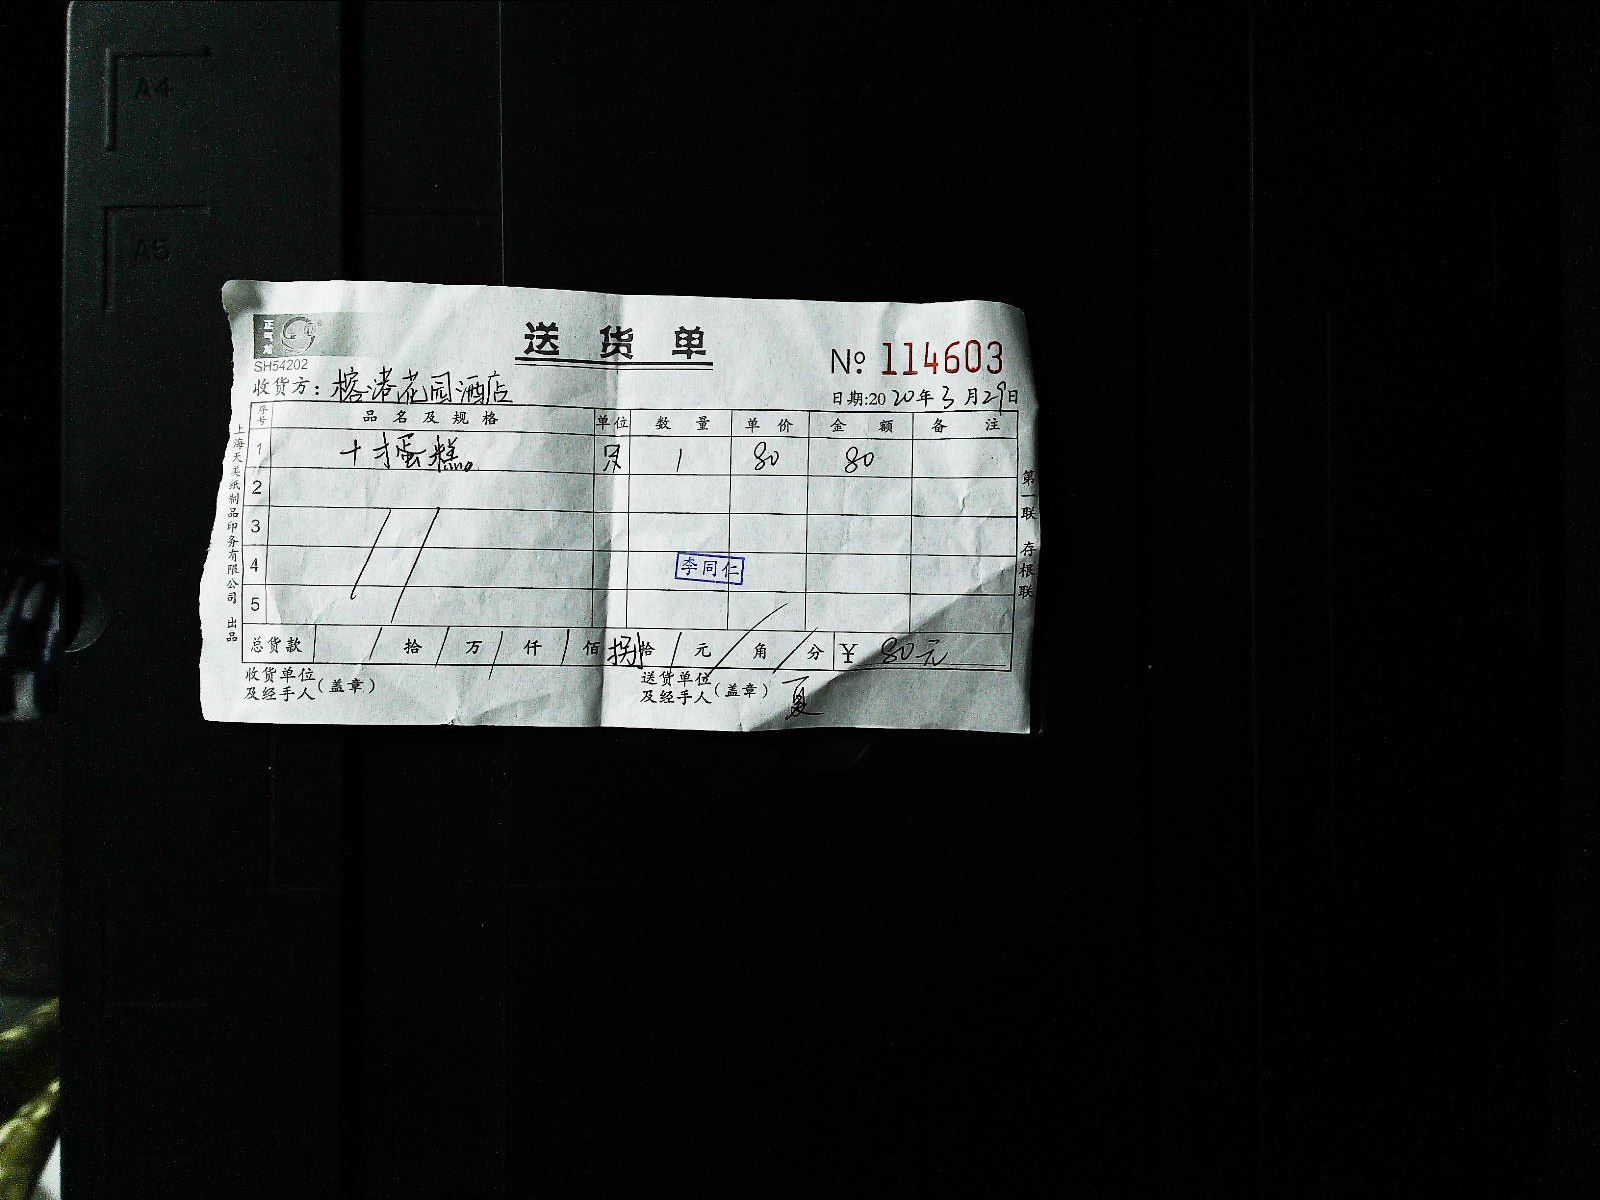 A4
A5
送货单
№ 114603
SH54202
收货方：榕港花园酒店
日期:2020年3月29日
序号 品名及规格 单位 数量 单价 金额 备注
1 十寸蛋糕。 只 1 80 80
2
3
4 李同仁
5
总货款 拾 万 仟 佰 捌拾 元 角 分 ¥ 80元
收货单位及经手人（盖章）
送货单位及经手人（盖章） 夏
上海天美纸制品印务有限公司 出品
第一联 存根联